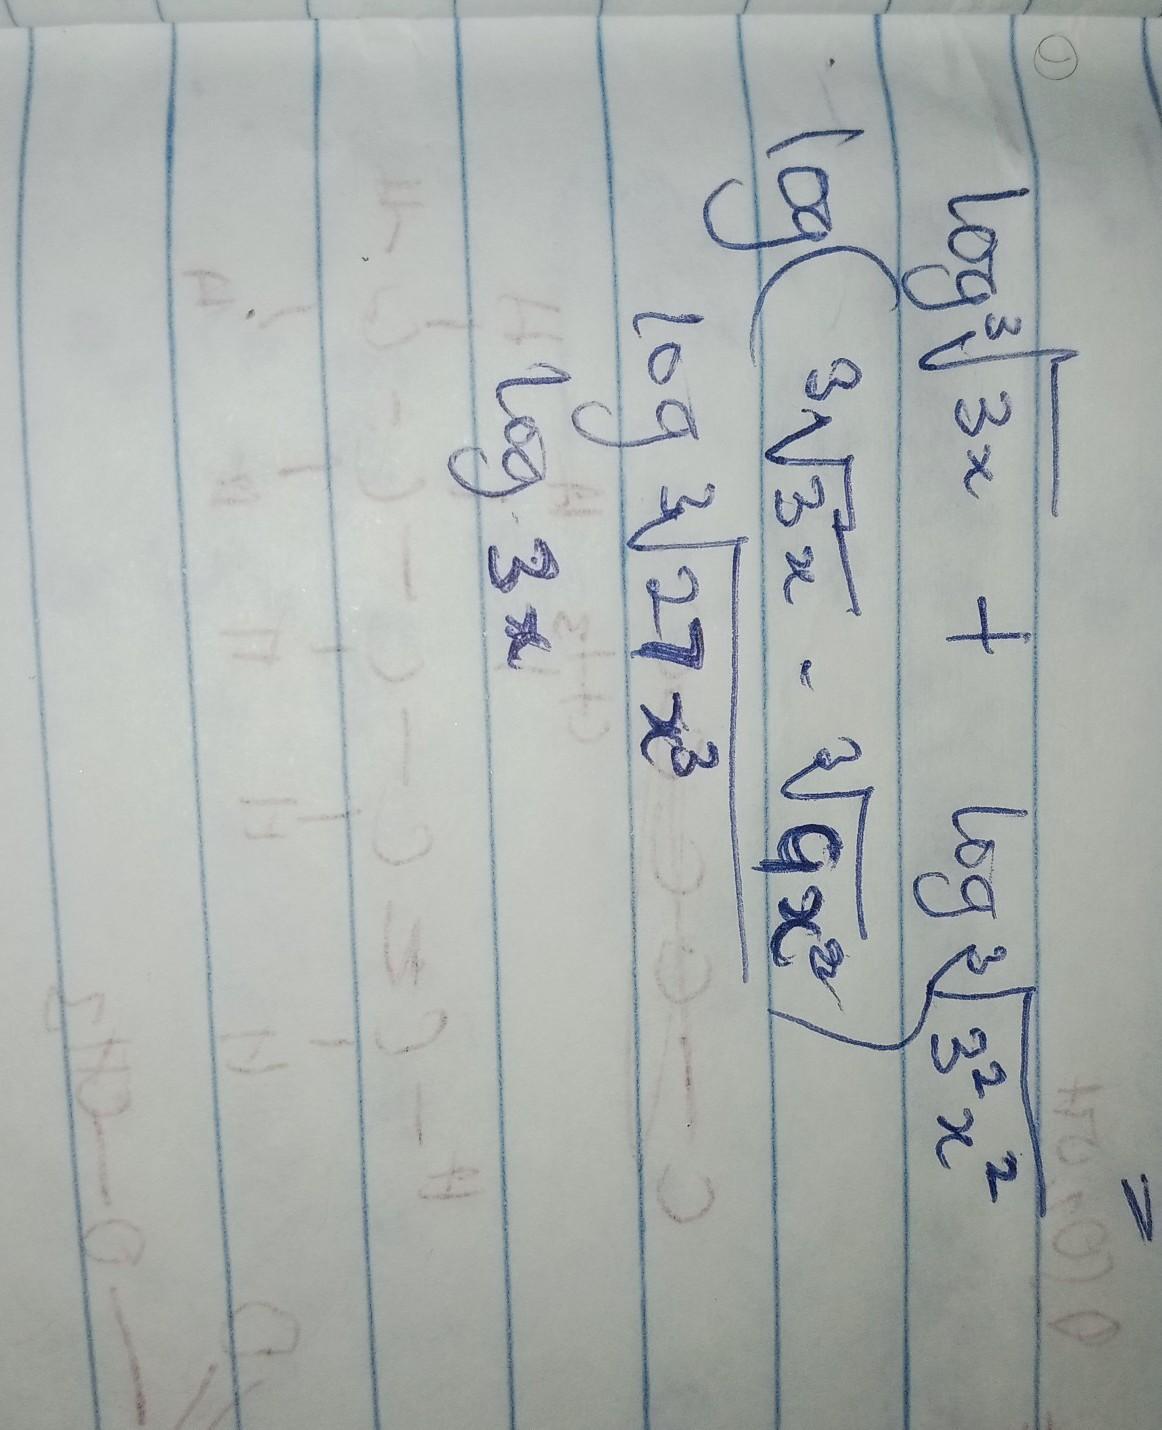 ①
log ∛3x + log ∛3²x²
log(∛3x · ∛9x²)
log ∛27x³
log 3x